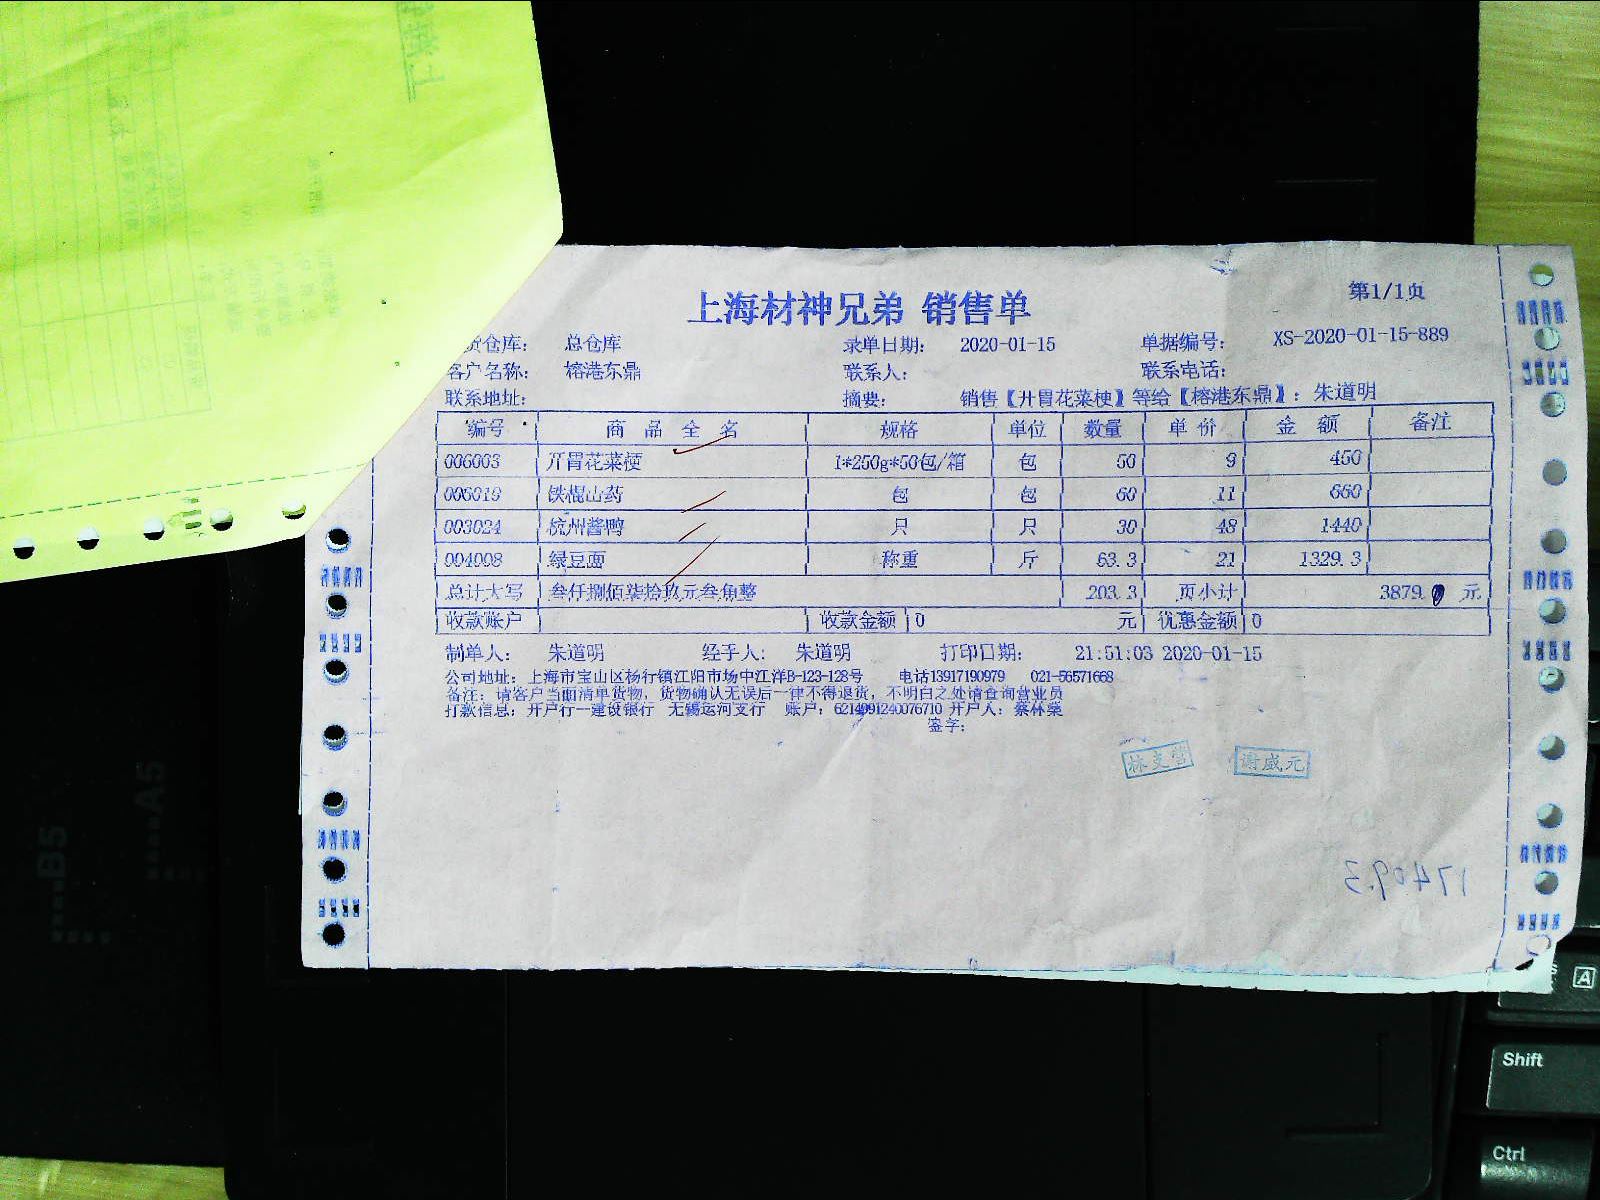 上海材神兄弟 销售单
第1/1页
货仓库： 总仓库 录单日期： 2020-01-15 单据编号： XS-2020-01-15-889
客户名称： 榕港东鼎 联系人： 联系电话：
联系地址： 摘要： 销售【开胃花菜梗】等给【榕港东鼎】：朱道明
编号 商品全名 规格 单位 数量 单价 金额 备注
006003 开胃花菜梗 1*250g*50包/箱 包 50 9 450
006019 铁棍山药 包 包 60 11 660
003024 杭州酱鸭 只 只 30 48 1440
004008 绿豆面 称重 斤 63.3 21 1329.3
总计大写 叁仟捌佰柒拾玖元叁角整 203.3 页小计 3879. 元
收款账户 收款金额 0 元 优惠金额 0
制单人： 朱道明 经手人： 朱道明 打印日期： 21:51:03 2020-01-15
公司地址：上海市宝山区杨行镇江阳市场中江洋B-123-128号 电话13917190979 021-56571668
备注：请客户当面清单货物，货物确认无误后一律不得退货，不明白之处请查询营业员
打款信息：开户行--建设银行 无锡运河支行 账户：6214991240076710 开户人：蔡林燊
签字：
林支营 谢盛元
17409.3
B5
A5
A
Shift
Ctrl